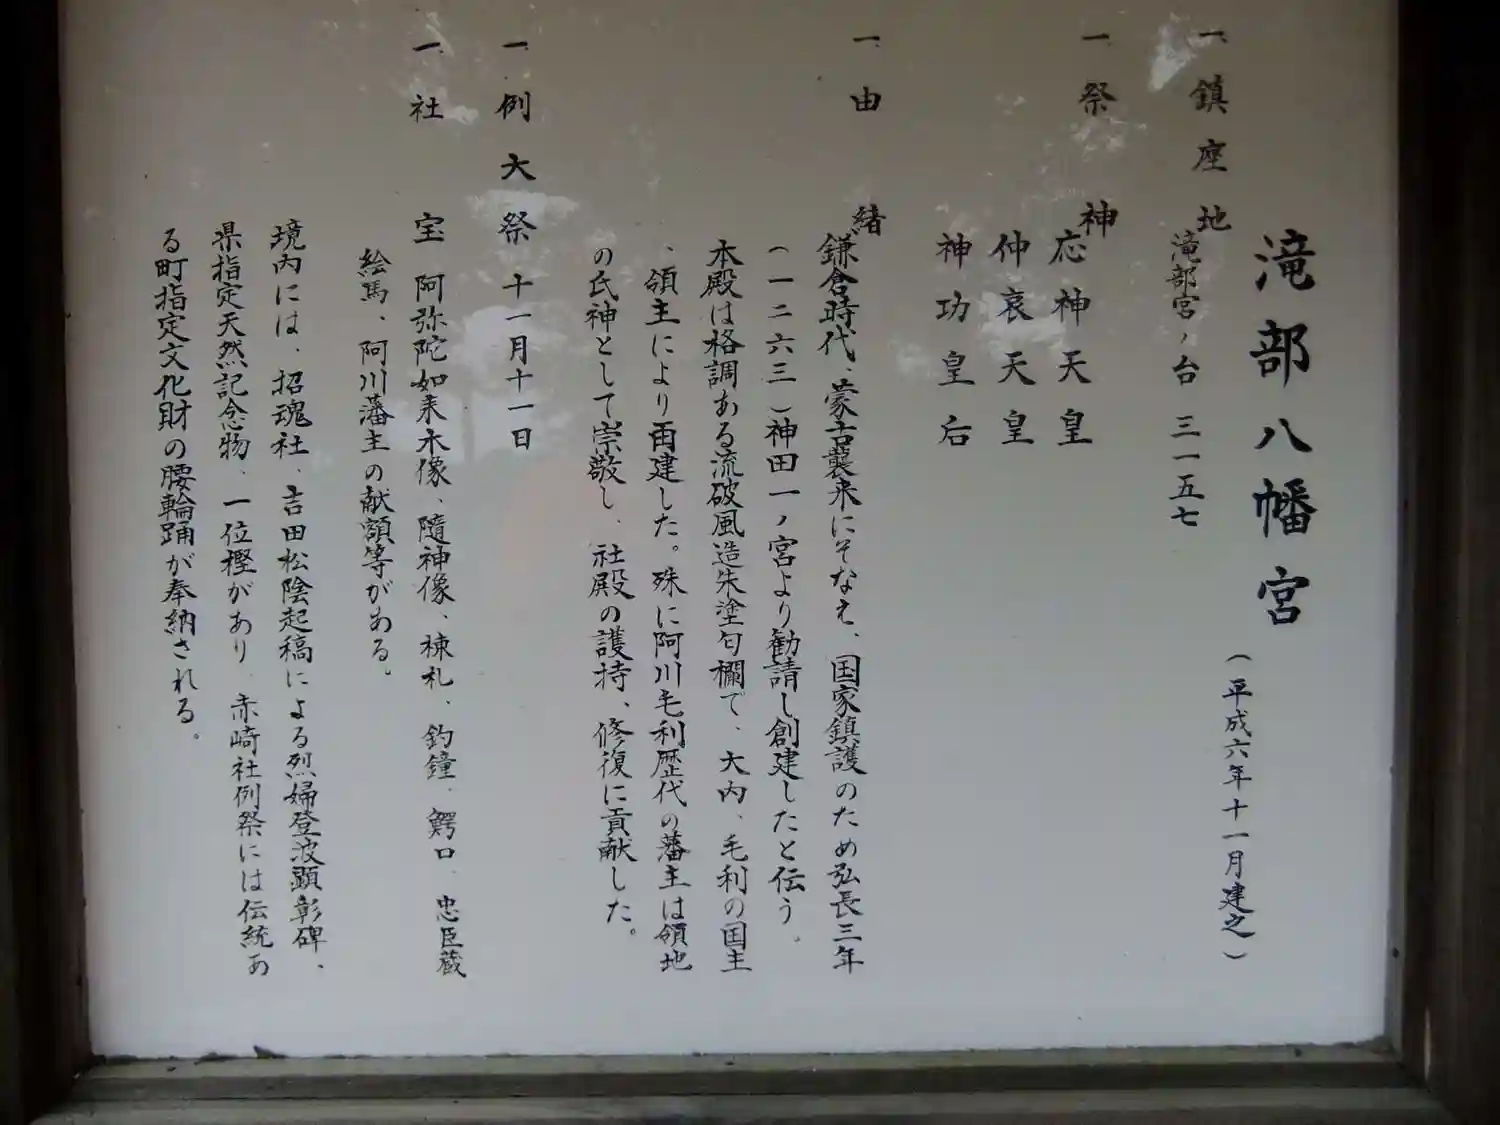 滝部八幡宮
(平成六年十一月建之)
一 鎮座地
滝部宮ノ台 三一五七
一 祭神
応神天皇
仲哀天皇
神功皇后
一 由緒
鎌倉時代、蒙古襲来にそなえ、国家鎮護のため弘長三年
(一二六三)神田一ノ宮より勧請し創建したと伝う。
本殿は格調ある流破風造朱塗匂欄で、大内、毛利の国主
、領主により再建した。殊に阿川毛利歴代の藩主は領地
の氏神として崇敬し、社殿の護持、修復に貢献した。
一 例大祭 十一月十一日
一 社宝 阿弥陀如来木像、隨神像、棟札、釣鐘、鰐口、忠臣蔵
絵馬、阿川藩主の献額等がある。
境内には、招魂社、吉田松陰起稿による烈婦登波顕彰碑、
県指定天然記念物、一位樫があり、赤崎社例祭には伝統あ
る町指定文化財の腰輪踊が奉納される。